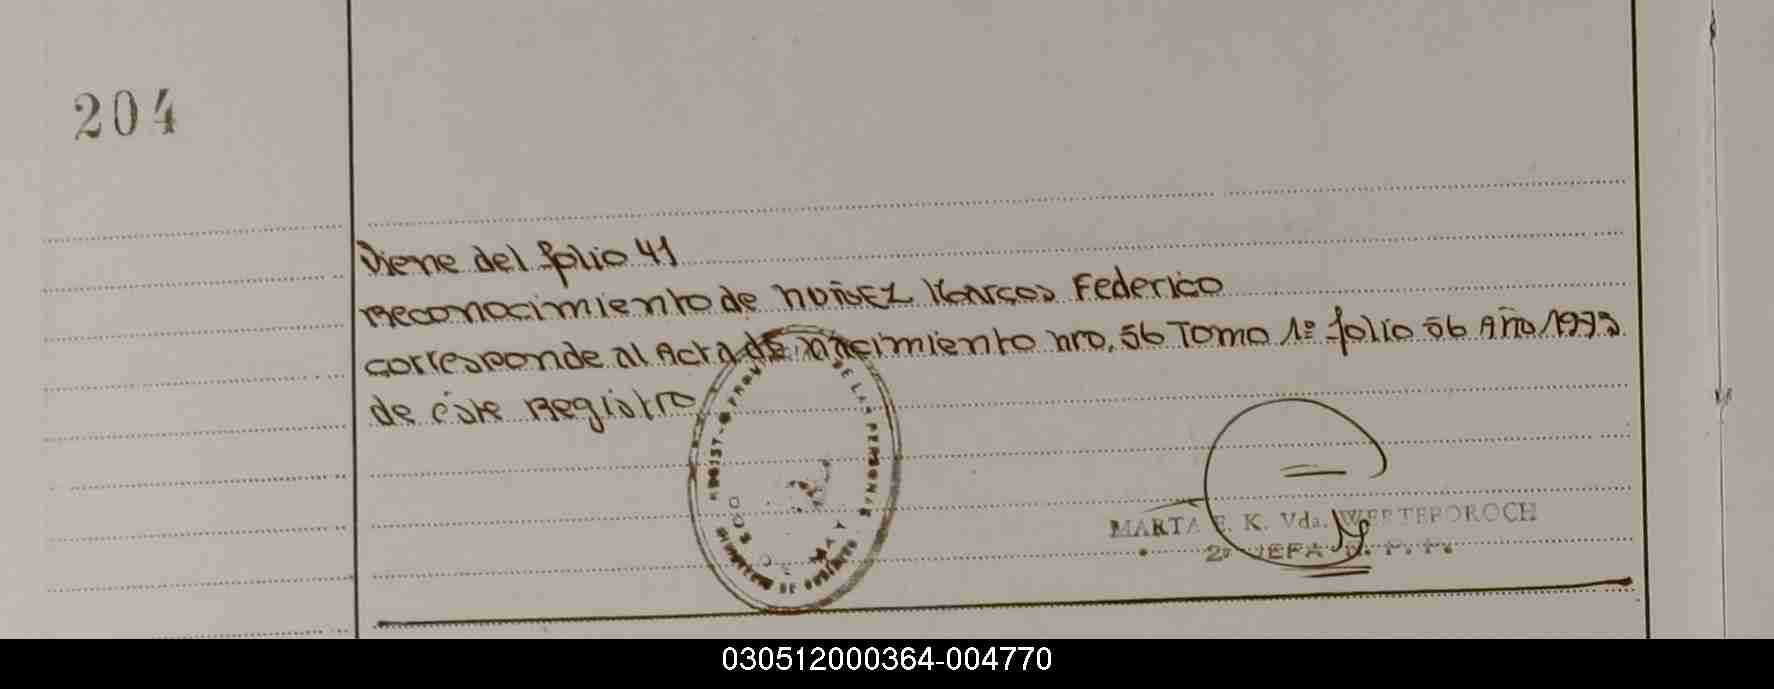 204
Viene del folio 41
Reconocimiento de NUÑEZ Marcos Federico
corresponde al Acta de nacimiento nro. 56 Tomo 1º folio 56 Año 1973
de éste Registro
DE LAS PERSONAS
MARTA E. K. Vda. WERTEPOROCH
2º JEFA
030512000364-004770